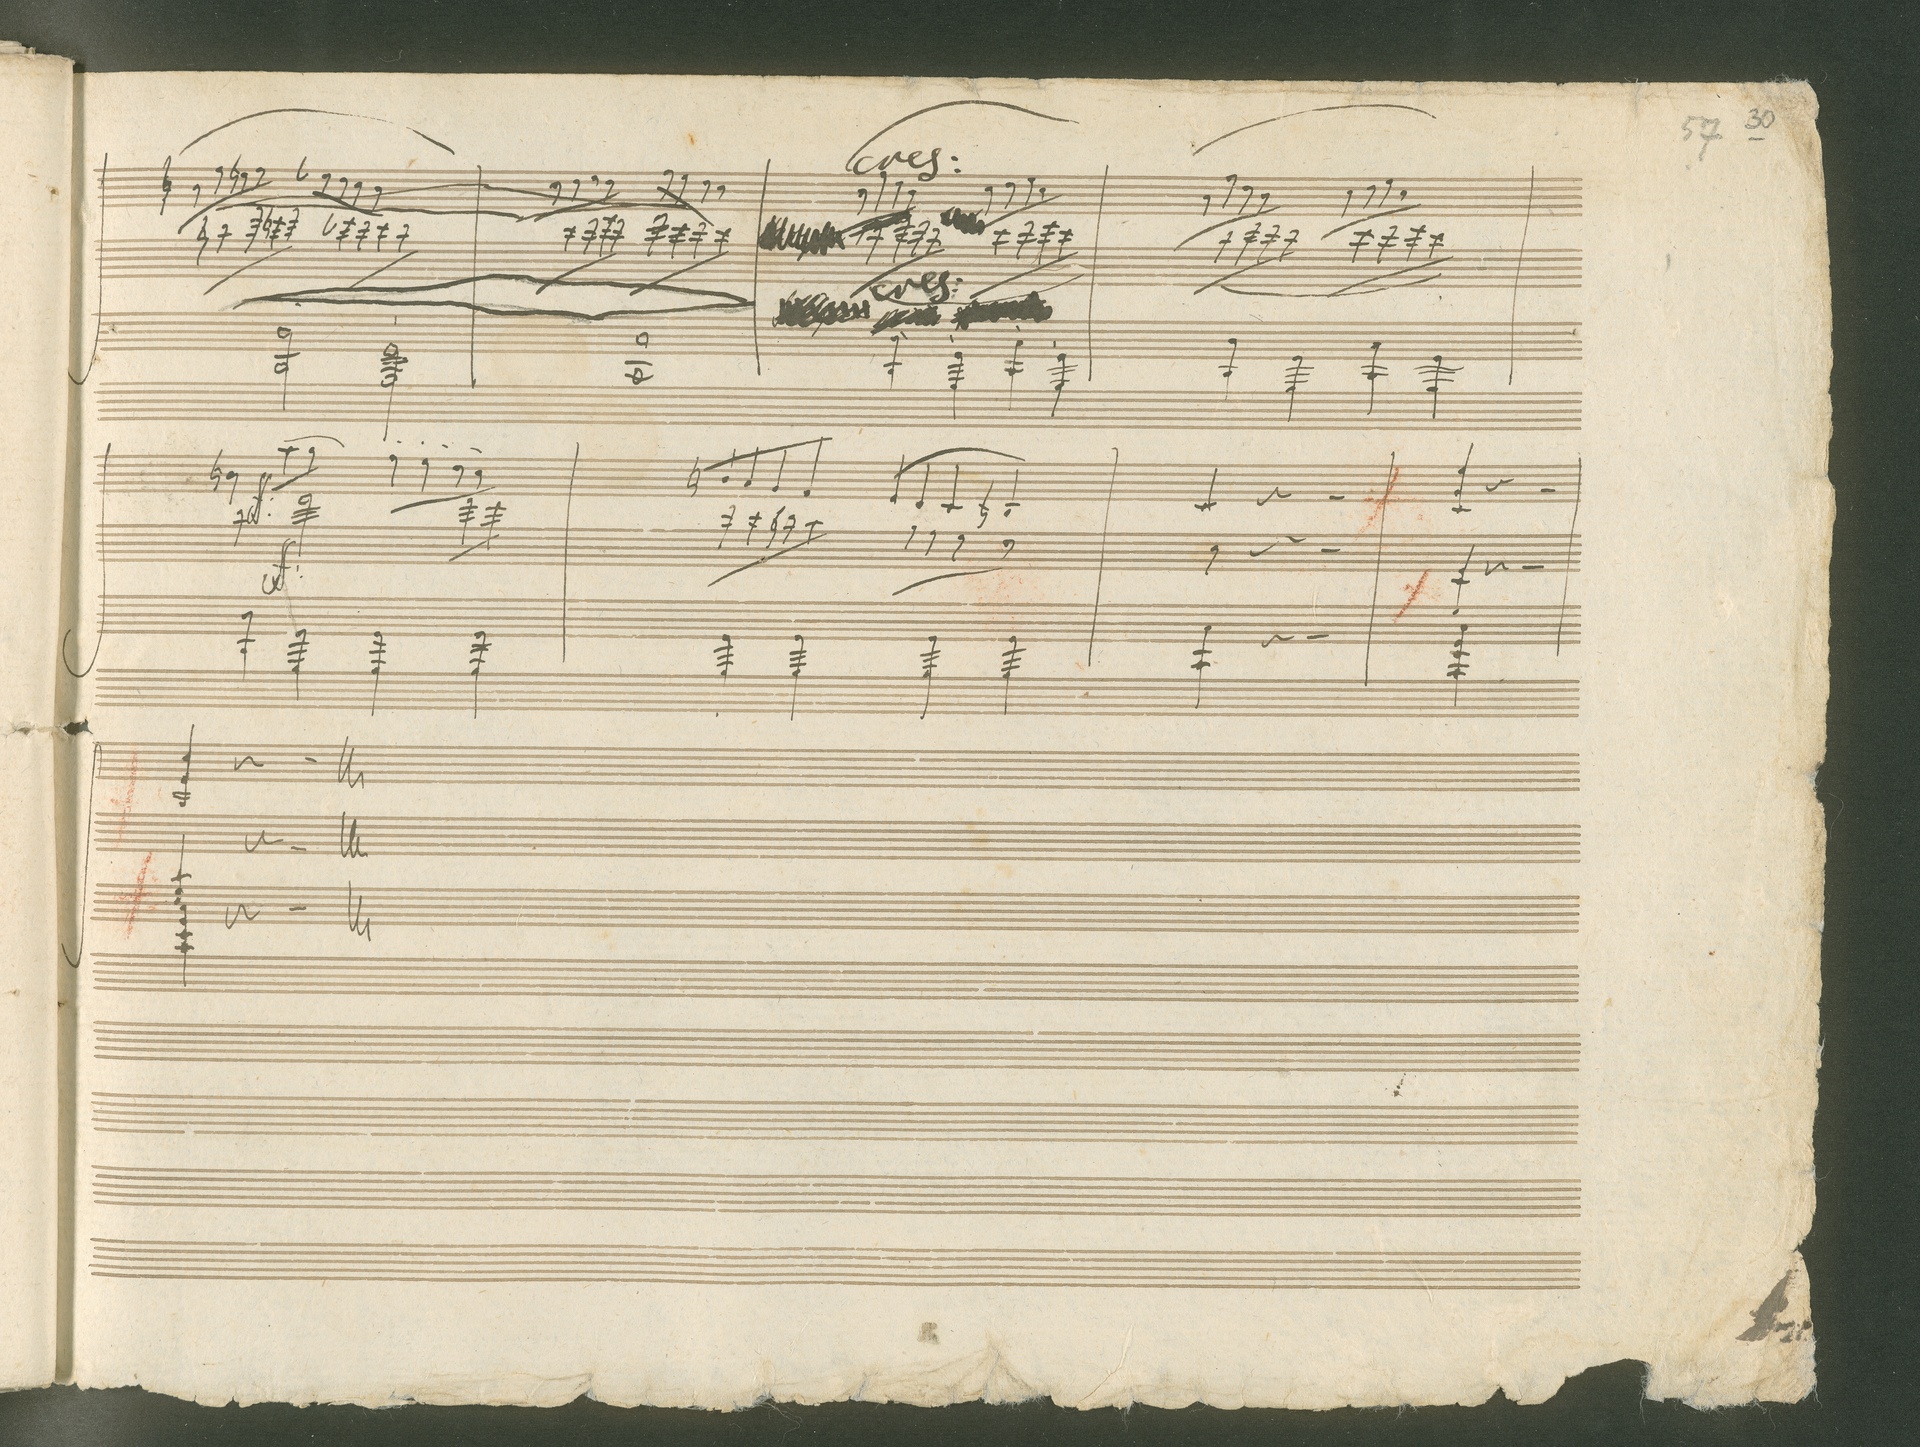 57 30
cres:
cres:
f:
f: